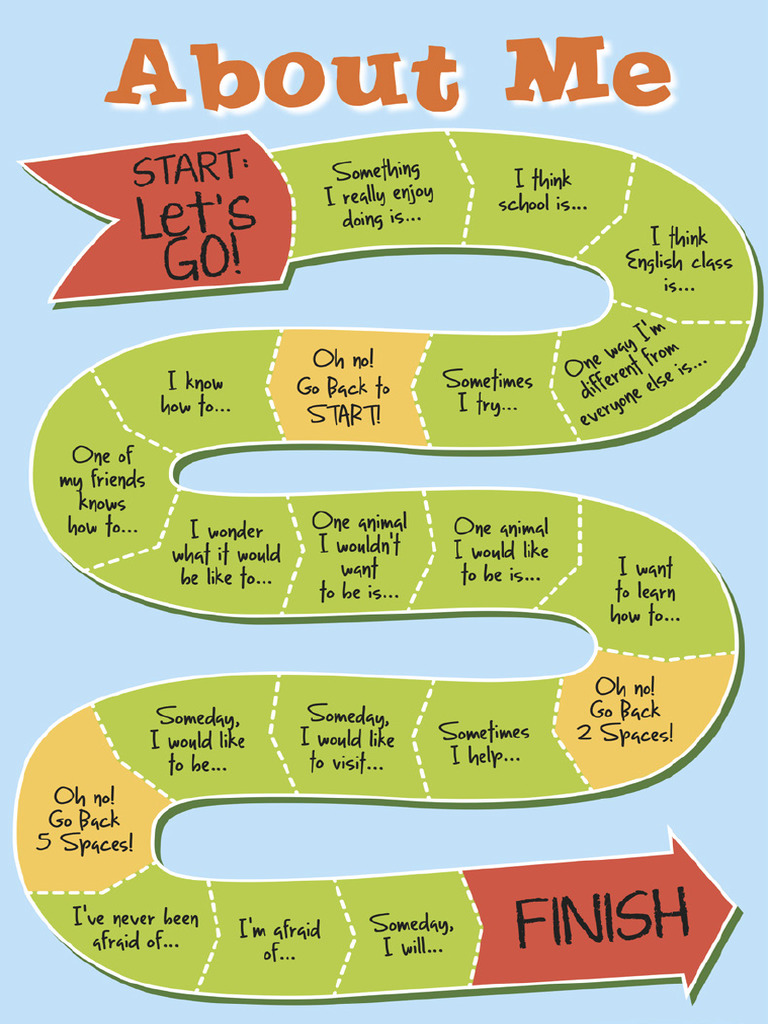 About Me
START:
Let's
GO!
Something
I really enjoy
doing is...
I think
school is...
I think
English class
is...
One way I'm
different from
everyone else is...
Sometimes
I try...
Oh no!
Go Back to
START!
I know
how to...
One of
my friends
knows
how to...
I wonder
what it would
be like to...
One animal
I wouldn't
want
to be is...
One animal
I would like
to be is...
I want
to learn
how to...
Oh no!
Go Back
2 Spaces!
Sometimes
I help...
Someday,
I would like
to visit...
Someday,
I would like
to be...
Oh no!
Go Back
5 Spaces!
I've never been
afraid of...
I'm afraid
of...
Someday,
I will...
FINISH